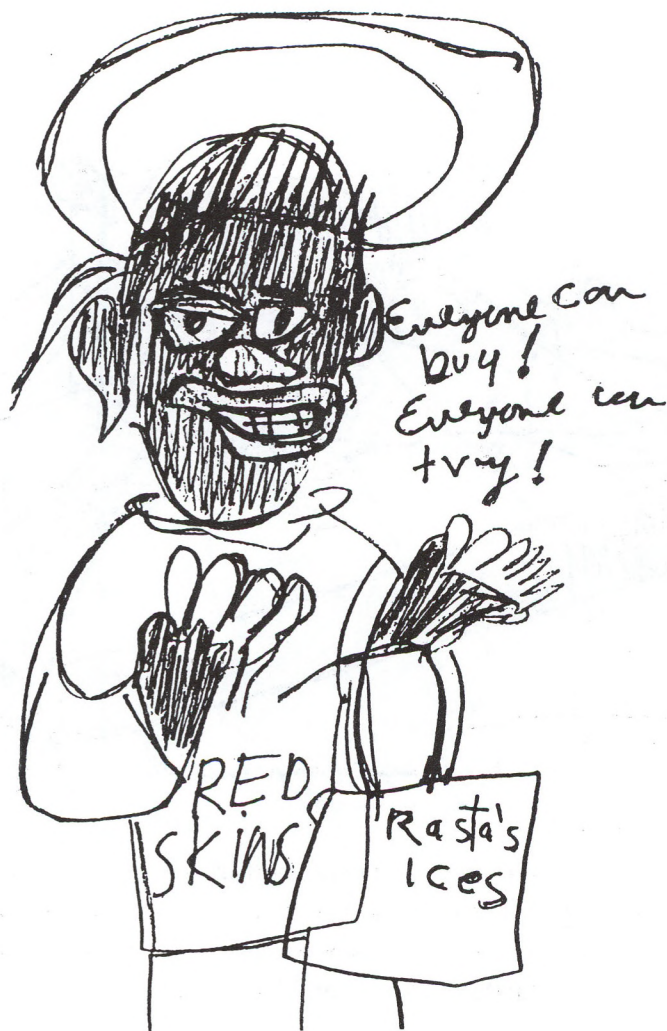 Everyone can
buy!
Everyone can
try!
RED
SKINS
Rasta's
Ices